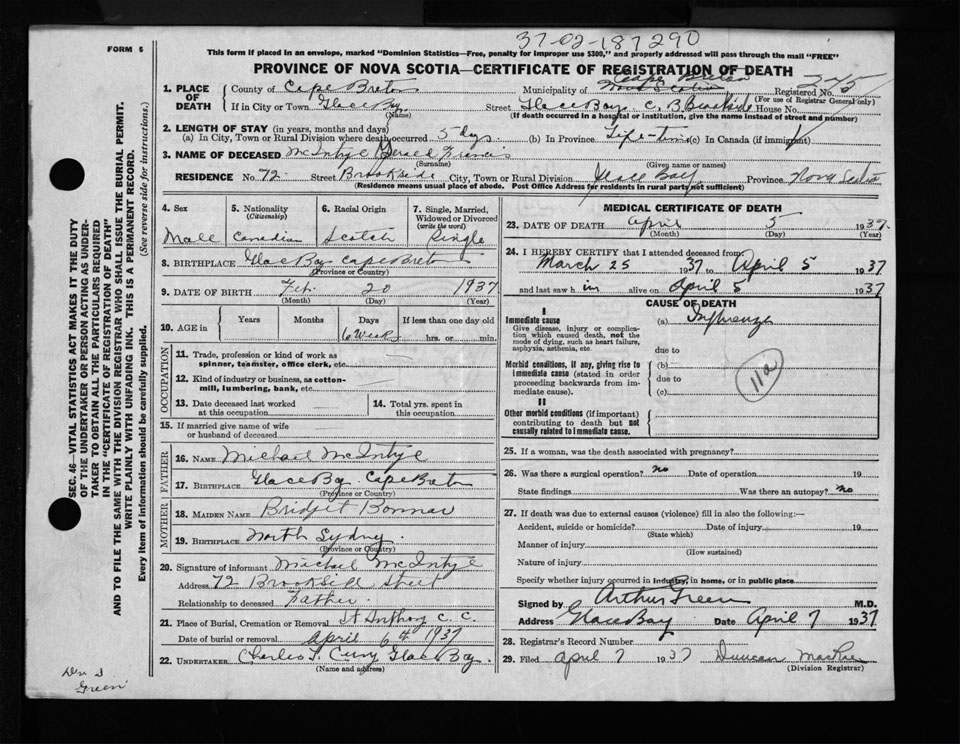 37-02-187290
FORM 6
This form if placed in an envelope, marked "Dominion Statistics—Free, penalty for improper use $300," and properly addressed will pass through the mail "FREE"
PROVINCE OF NOVA SCOTIA—CERTIFICATE OF REGISTRATION OF DEATH
1. PLACE OF DEATH
County of Cape Breton Municipality of Cape Breton Nova Scotia Registered No.
(For use of Registrar General only)
If in City or Town Glace Bay Street Glace Bay C. B. Brookside House No.
(Name) (If death occurred in a hospital or institution, give the name instead of street and number)
2. LENGTH OF STAY (in years, months and days)
(a) In City, Town or Rural Division where death occurred 5 dys. (b) In Province Life-time (c) In Canada (if immigrant)
3. NAME OF DECEASED McIntyre Gerald Francis
(Surname) (Given name or names)
RESIDENCE No. 72 Street Brookside City, Town or Rural Division Glace Bay Province Nova Scotia
(Residence means usual place of abode. Post Office Address for residents in rural parts not sufficient)
4. Sex
Male
5. Nationality (Citizenship)
Canadian
6. Racial Origin
Scotch
7. Single, Married, Widowed or Divorced (write the word)
Single
8. BIRTHPLACE Glace Bay Cape Breton
(Province or Country)
9. DATE OF BIRTH Feb. 20 1937
(Month) (Day) (Year)
10. AGE in Years Months Days If less than one day old
6 weeks hrs. or min.
OCCUPATION
11. Trade, profession or kind of work as
spinner, teamster, office clerk, etc.
12. Kind of industry or business, as cotton-
mill, lumbering, bank, etc.
13. Date deceased last worked
at this occupation
14. Total yrs. spent in
this occupation
15. If married give name of wife
or husband of deceased
FATHER
16. NAME Michael McIntyre
17. BIRTHPLACE Glace Bay Cape Breton
(Province or Country)
MOTHER
18. MAIDEN NAME Bridget Bonnar
19. BIRTHPLACE North Sydney
(Province or Country)
20. Signature of informant Michael McIntyre
Address 72 Brookside Street
Relationship to deceased Father
21. Place of Burial, Cremation or Removal St Anthony C. C.
Date of burial or removal April 6th 1937
22. UNDERTAKER Charles J. Curry Glace Bay
(Name and address)
MEDICAL CERTIFICATE OF DEATH
23. DATE OF DEATH April 5 1937
(Month) (Day) (Year)
24. I HEREBY CERTIFY that I attended deceased from
March 25 1937 to April 5 1937
and last saw him alive on April 5 1937
CAUSE OF DEATH
I
Immediate cause
Give disease, injury or complica-
tion which caused death, not the
mode of dying, such as heart failure,
asphyxia, asthenia, etc.
(a) Influenza
due to
Morbid conditions, if any, giving rise to
immediate cause (stated in order
proceeding backwards from im-
mediate cause).
(b)
due to
(c)
11a
II
Other morbid conditions (if important)
contributing to death but not
causally related to immediate cause.
25. If a woman, was the death associated with pregnancy?
26. Was there a surgical operation? No Date of operation 19
State findings Was there an autopsy? No
27. If death was due to external causes (violence) fill in also the following:—
Accident, suicide or homicide? Date of injury 19
(State which)
Manner of injury
(How sustained)
Nature of injury
Specify whether injury occurred in industry, in home, or in public place
Signed by Arthur Green M.D.
Address Glace Bay Date April 7 1937
28. Registrar's Record Number
29. Filed April 7 1937 Duncan MacRae
(Division Registrar)
SEC. 46—VITAL STATISTICS ACT MAKES IT THE DUTY
OF THE UNDERTAKER OR PERSON ACTING AS UNDER-
TAKER TO OBTAIN ALL THE PARTICULARS REQUIRED
IN THE "CERTIFICATE OF REGISTRATION OF DEATH"
AND TO FILE THE SAME WITH THE DIVISION REGISTRAR WHO SHALL ISSUE THE BURIAL PERMIT.
WRITE PLAINLY WITH UNFADING INK. THIS IS A PERMANENT RECORD.
Every item of information should be carefully supplied. (See reverse side for instructions.)
Green